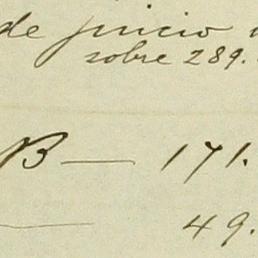 de juicio
sobre 289.
B — 171.
— 49.